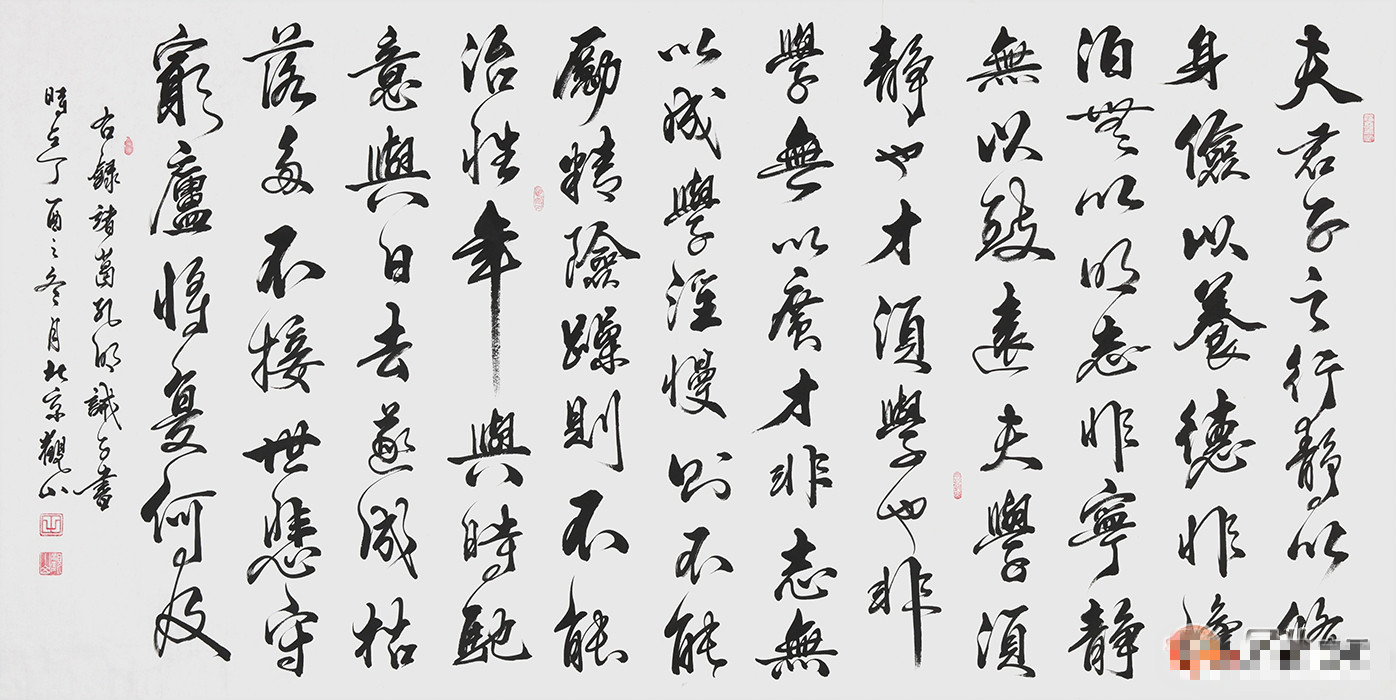 夫君子之行静以修
身儉以養德非澹
泊無以明志非寧静
無以致遠夫學須
静也才須學也非
學無以廣才非志無
以成學淫慢則不能
勵精險躁則不能
治性年與時馳
意與日去遂成枯
落多不接世悲守
窮廬將复何及
右錄諸葛孔明誡子書
時在丁酉之冬月北京觀山